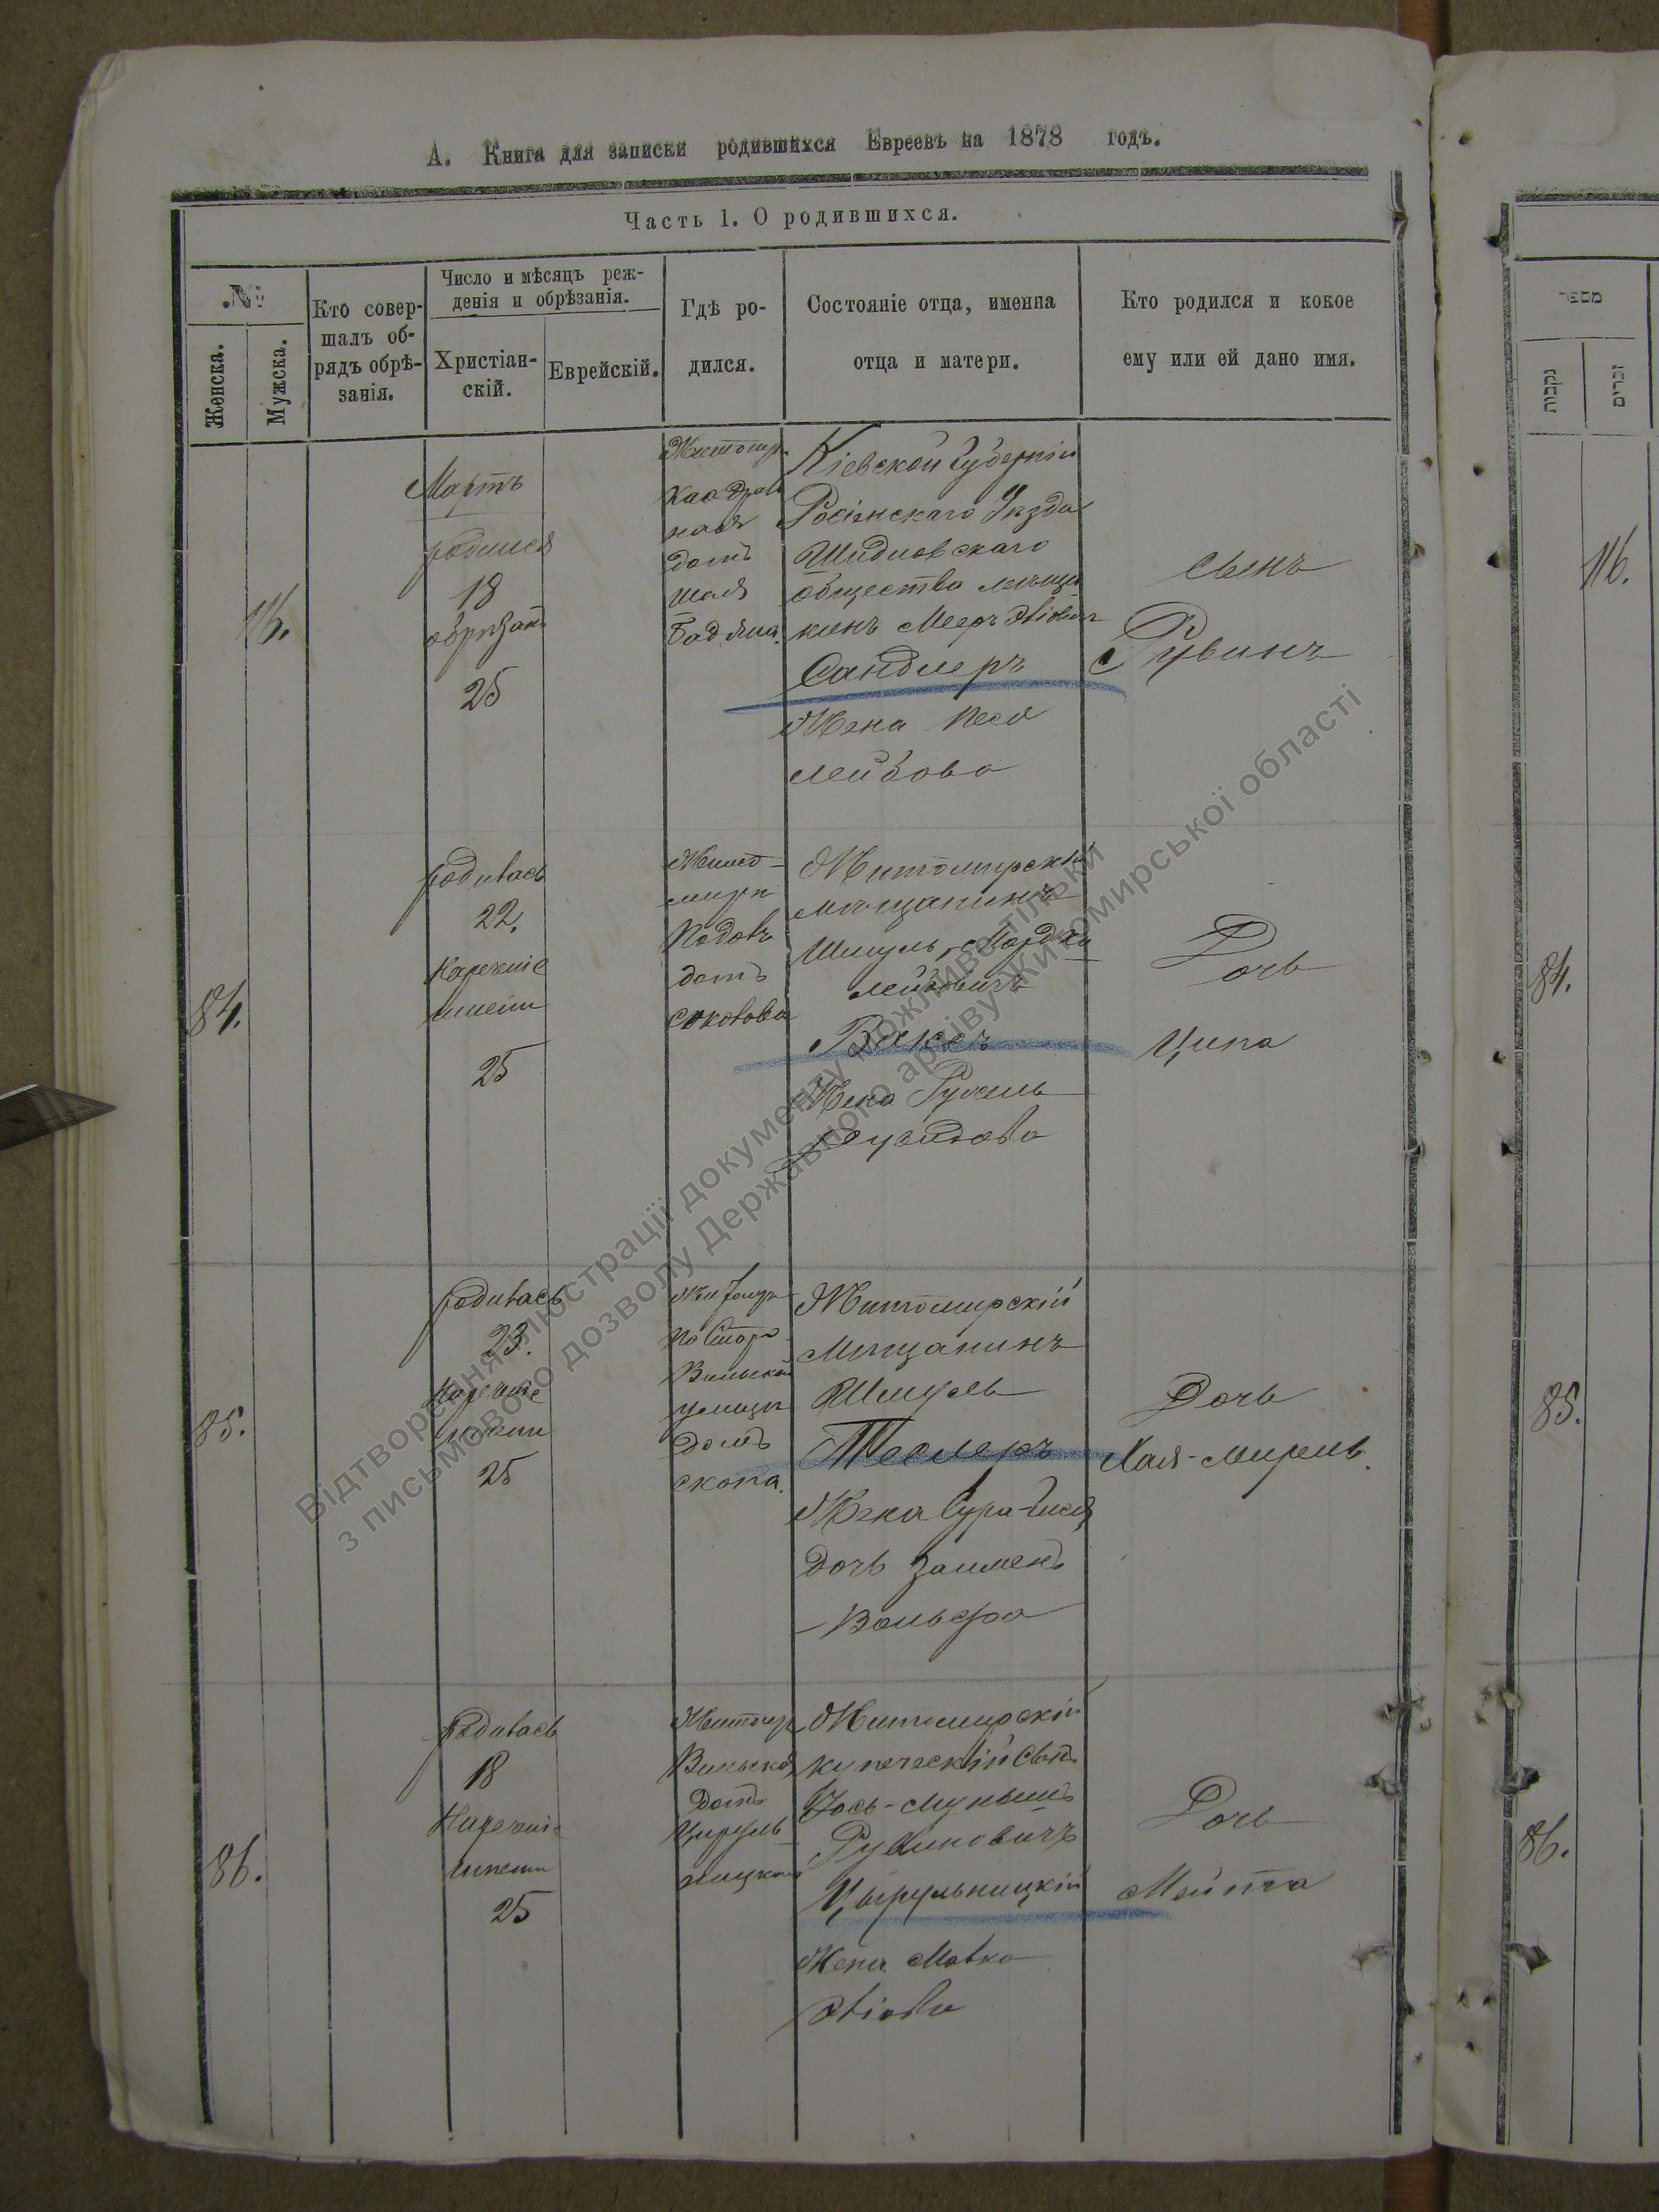 А. Книга для записки родившихся Евреевъ на 1878 годъ.
Часть 1. О родившихся.
№
Женска.
Мужска.
Кто совер-
шалъ об-
рядъ обрѣ-
занія.
Число и мѣсяцъ реж-
денія и обрѣзанія.
Христіан-
скій.
Еврейскій.
Гдѣ ро-
дился.
Состояніе отца, именна
отца и матери.
Кто родился и кокое
ему или ей дано имя.
116.
Мартъ
родился
18
обрѣзанъ
25
домъ
Кіевской Губерніи
Уѣзда
общества мѣща
нинъ Мееръ
Сандлеръ
Жена Песя
Лейбова
сынъ
Рувинъ
84.
родилась
22.
Нареченіе
имени
25
Жито-
миръ
домъ
Житомирскій
мѣщанинъ
Шмуль-Мордко
Лейбовичъ
Ваксъ
Жена Рухель
Дочь
Ципа
85.
родилась
23.
Нареченіе
имени
25
Житомиръ
Вильской
улицѣ
домъ
скопа.
Житомирскій
Мѣщанинъ
Шмуль
Теслеръ
Жена Сура-Бися
дочь Залмен
Вольфа
Дочь
Хая-Мирель.
86.
родилась
18
Нареченіе
имени
25
Житомир
Вильской
Домъ
Цируль
ницкого
Житомирскій
купеческій сынъ
Іось-Мунышъ
Рувиновичъ
Цырульницкій
Жена Матка
Дочь
Мейта
Відтворення ілюстрації документу можливе тільки
з письмового дозволу Державного архіву Житомирської області
מספר
נקבות
זכרים
116.
84.
85.
86.